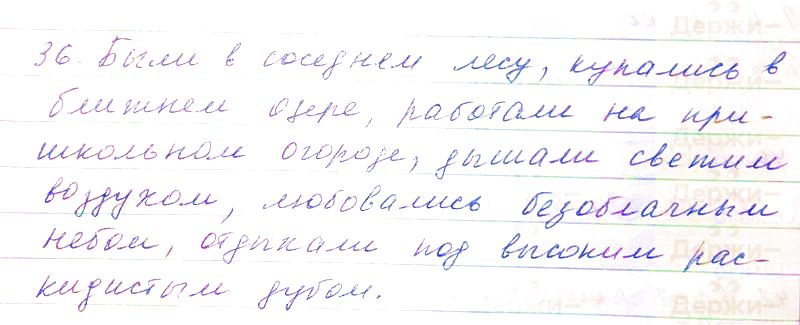 36. Были в соседнем лесу, купались в
ближнем озере, работали на при-
школьном огороде, дышали свежим
воздухом, любовались безоблачным
небом, отдыхали под высоким рас-
кидистым дубом.
Держи-
Держи-
Держи-
Держи-
Держи-
Держи-